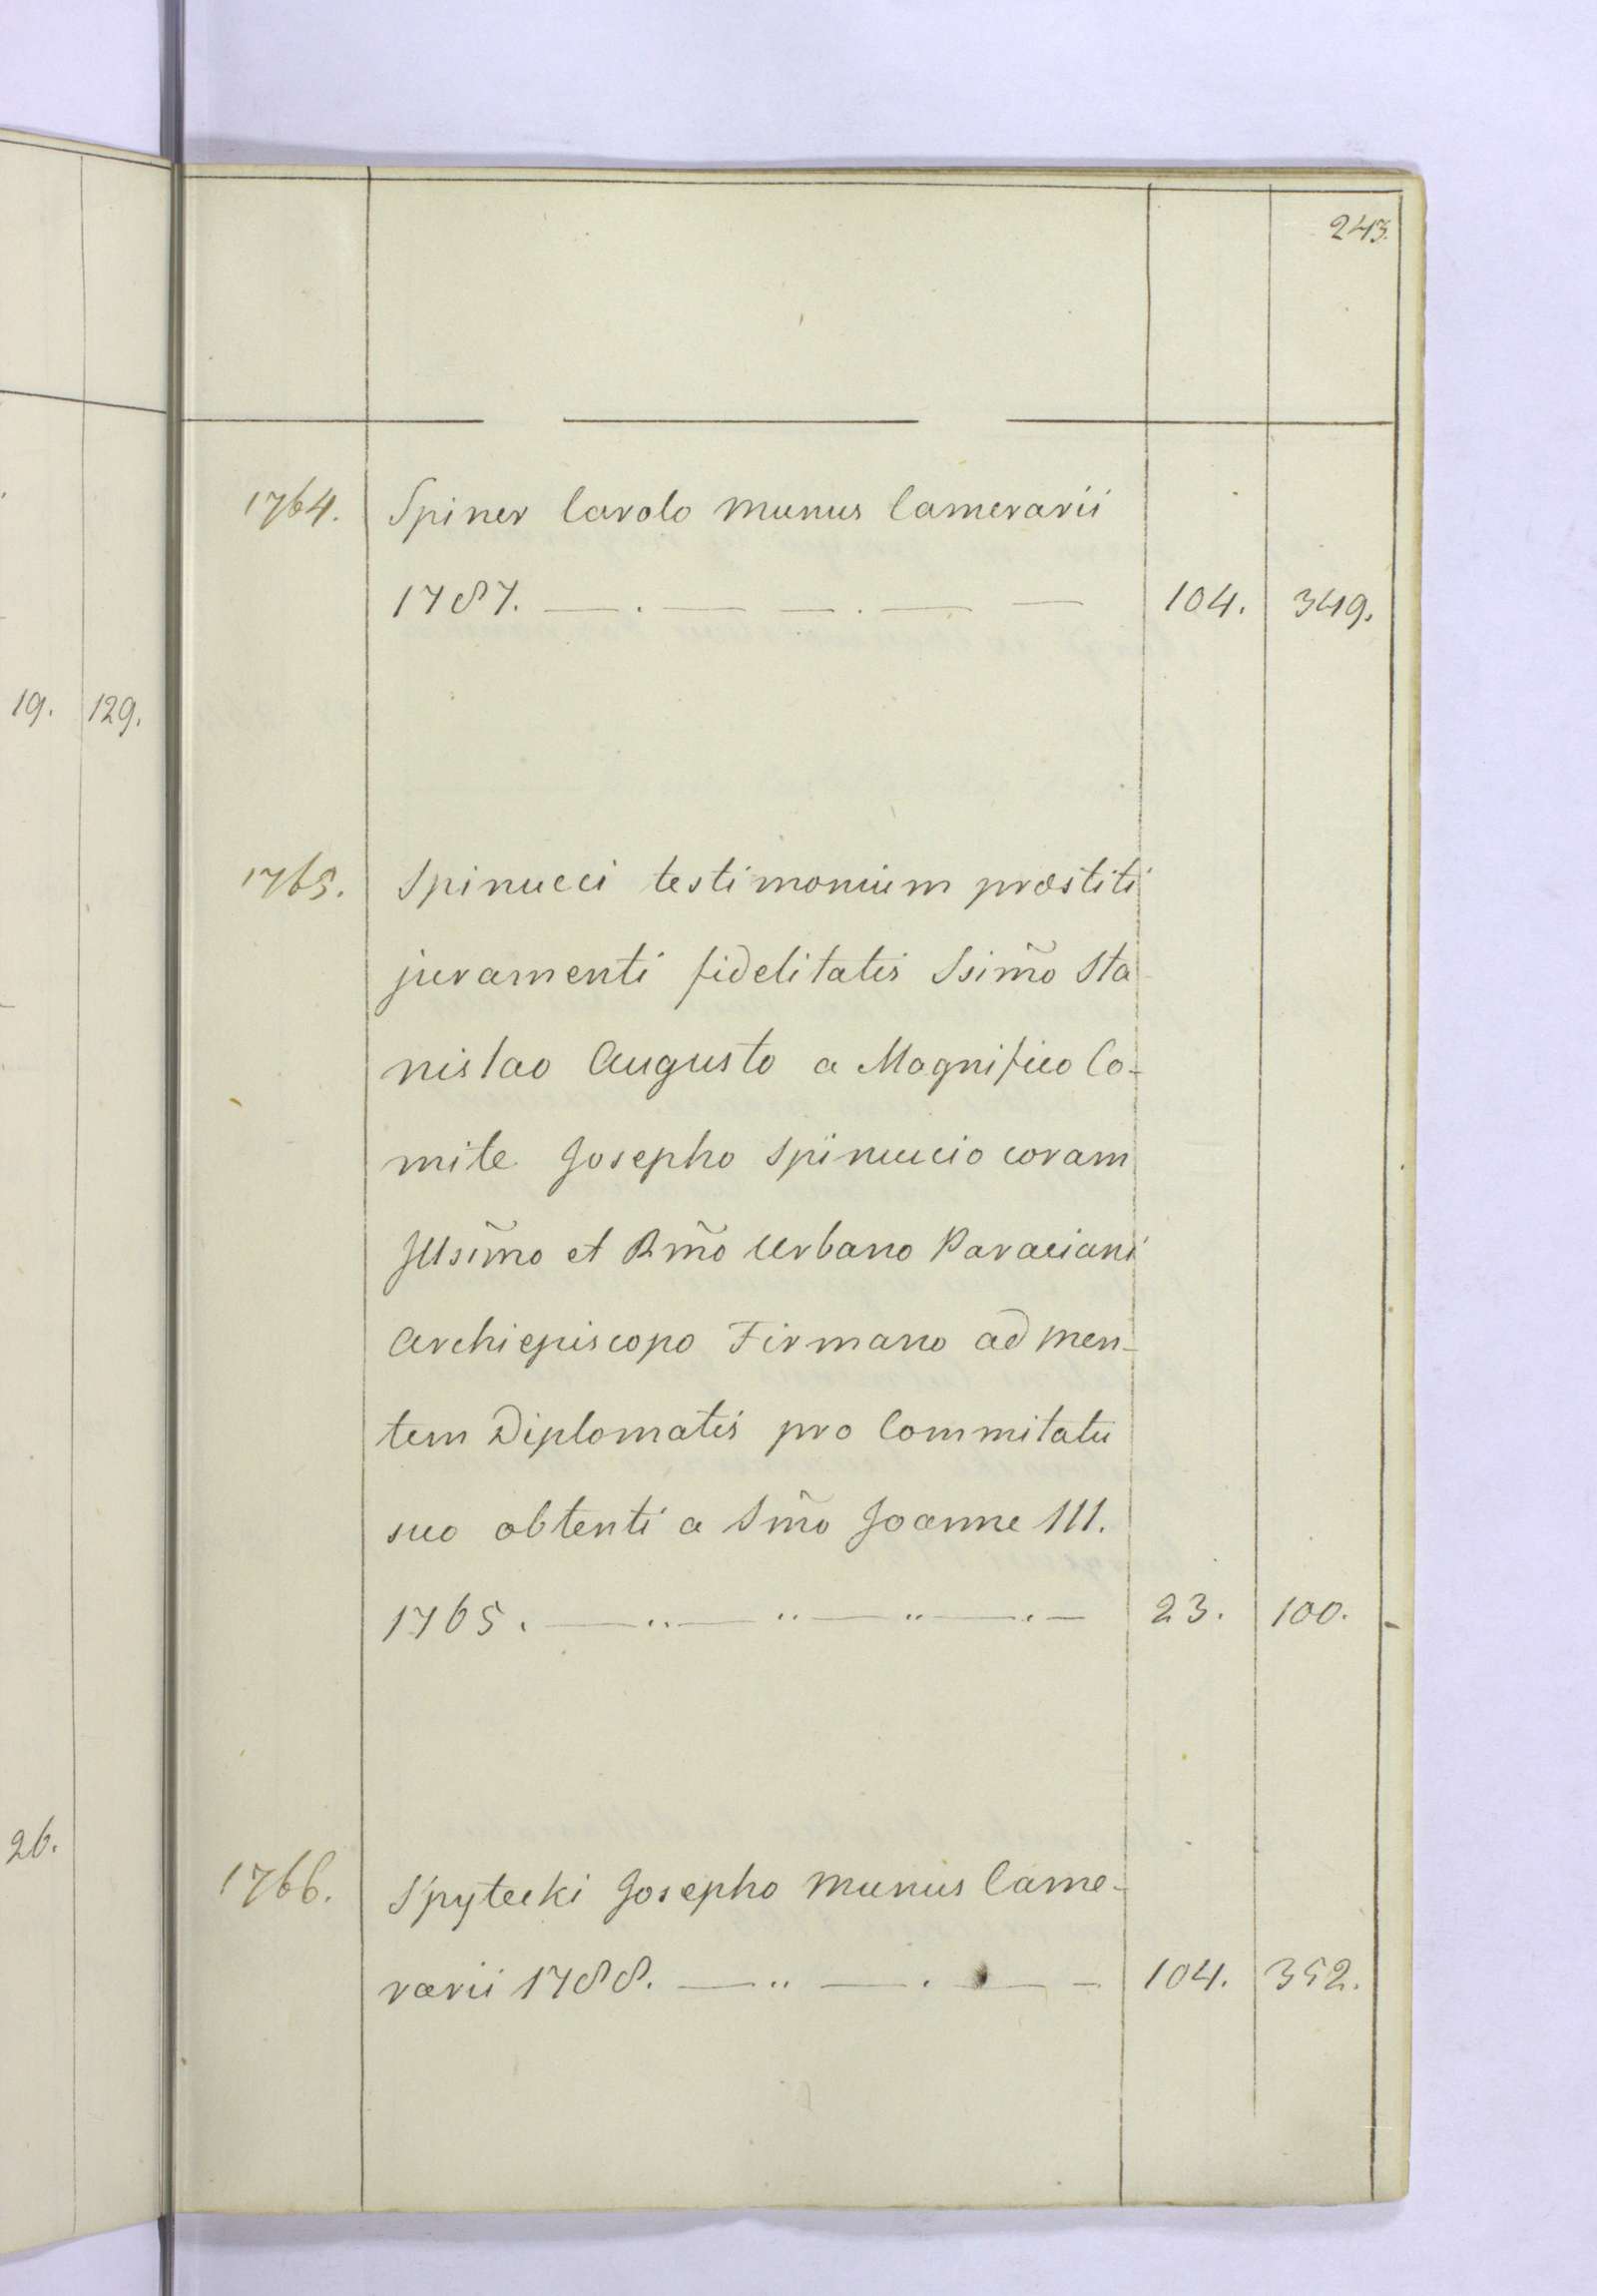 243.
1764. Spiner Carolo munus Camerarii
1787. — . — — . — — 104. 349.
19. 129.
1765. Spinucci testimonium præstiti
juramenti fidelitatis Ssim̃o Sta
nislao Augusto a Magnifico Co-
mite Josepho Spinuccio coram
Jllsim̃o et Rm̃o Urbano Paraciani
Archiepiscopo Firmano ad men-
tem Diplomatis pro Commitatu
suo obtenti a Sm̃o Joanne III.
1765. — .. — .. — .. — . — 23. 100.
26.
1766. Spytecki Josepho munus Came-
rarii 1788. — .. — . — — 104. 352.